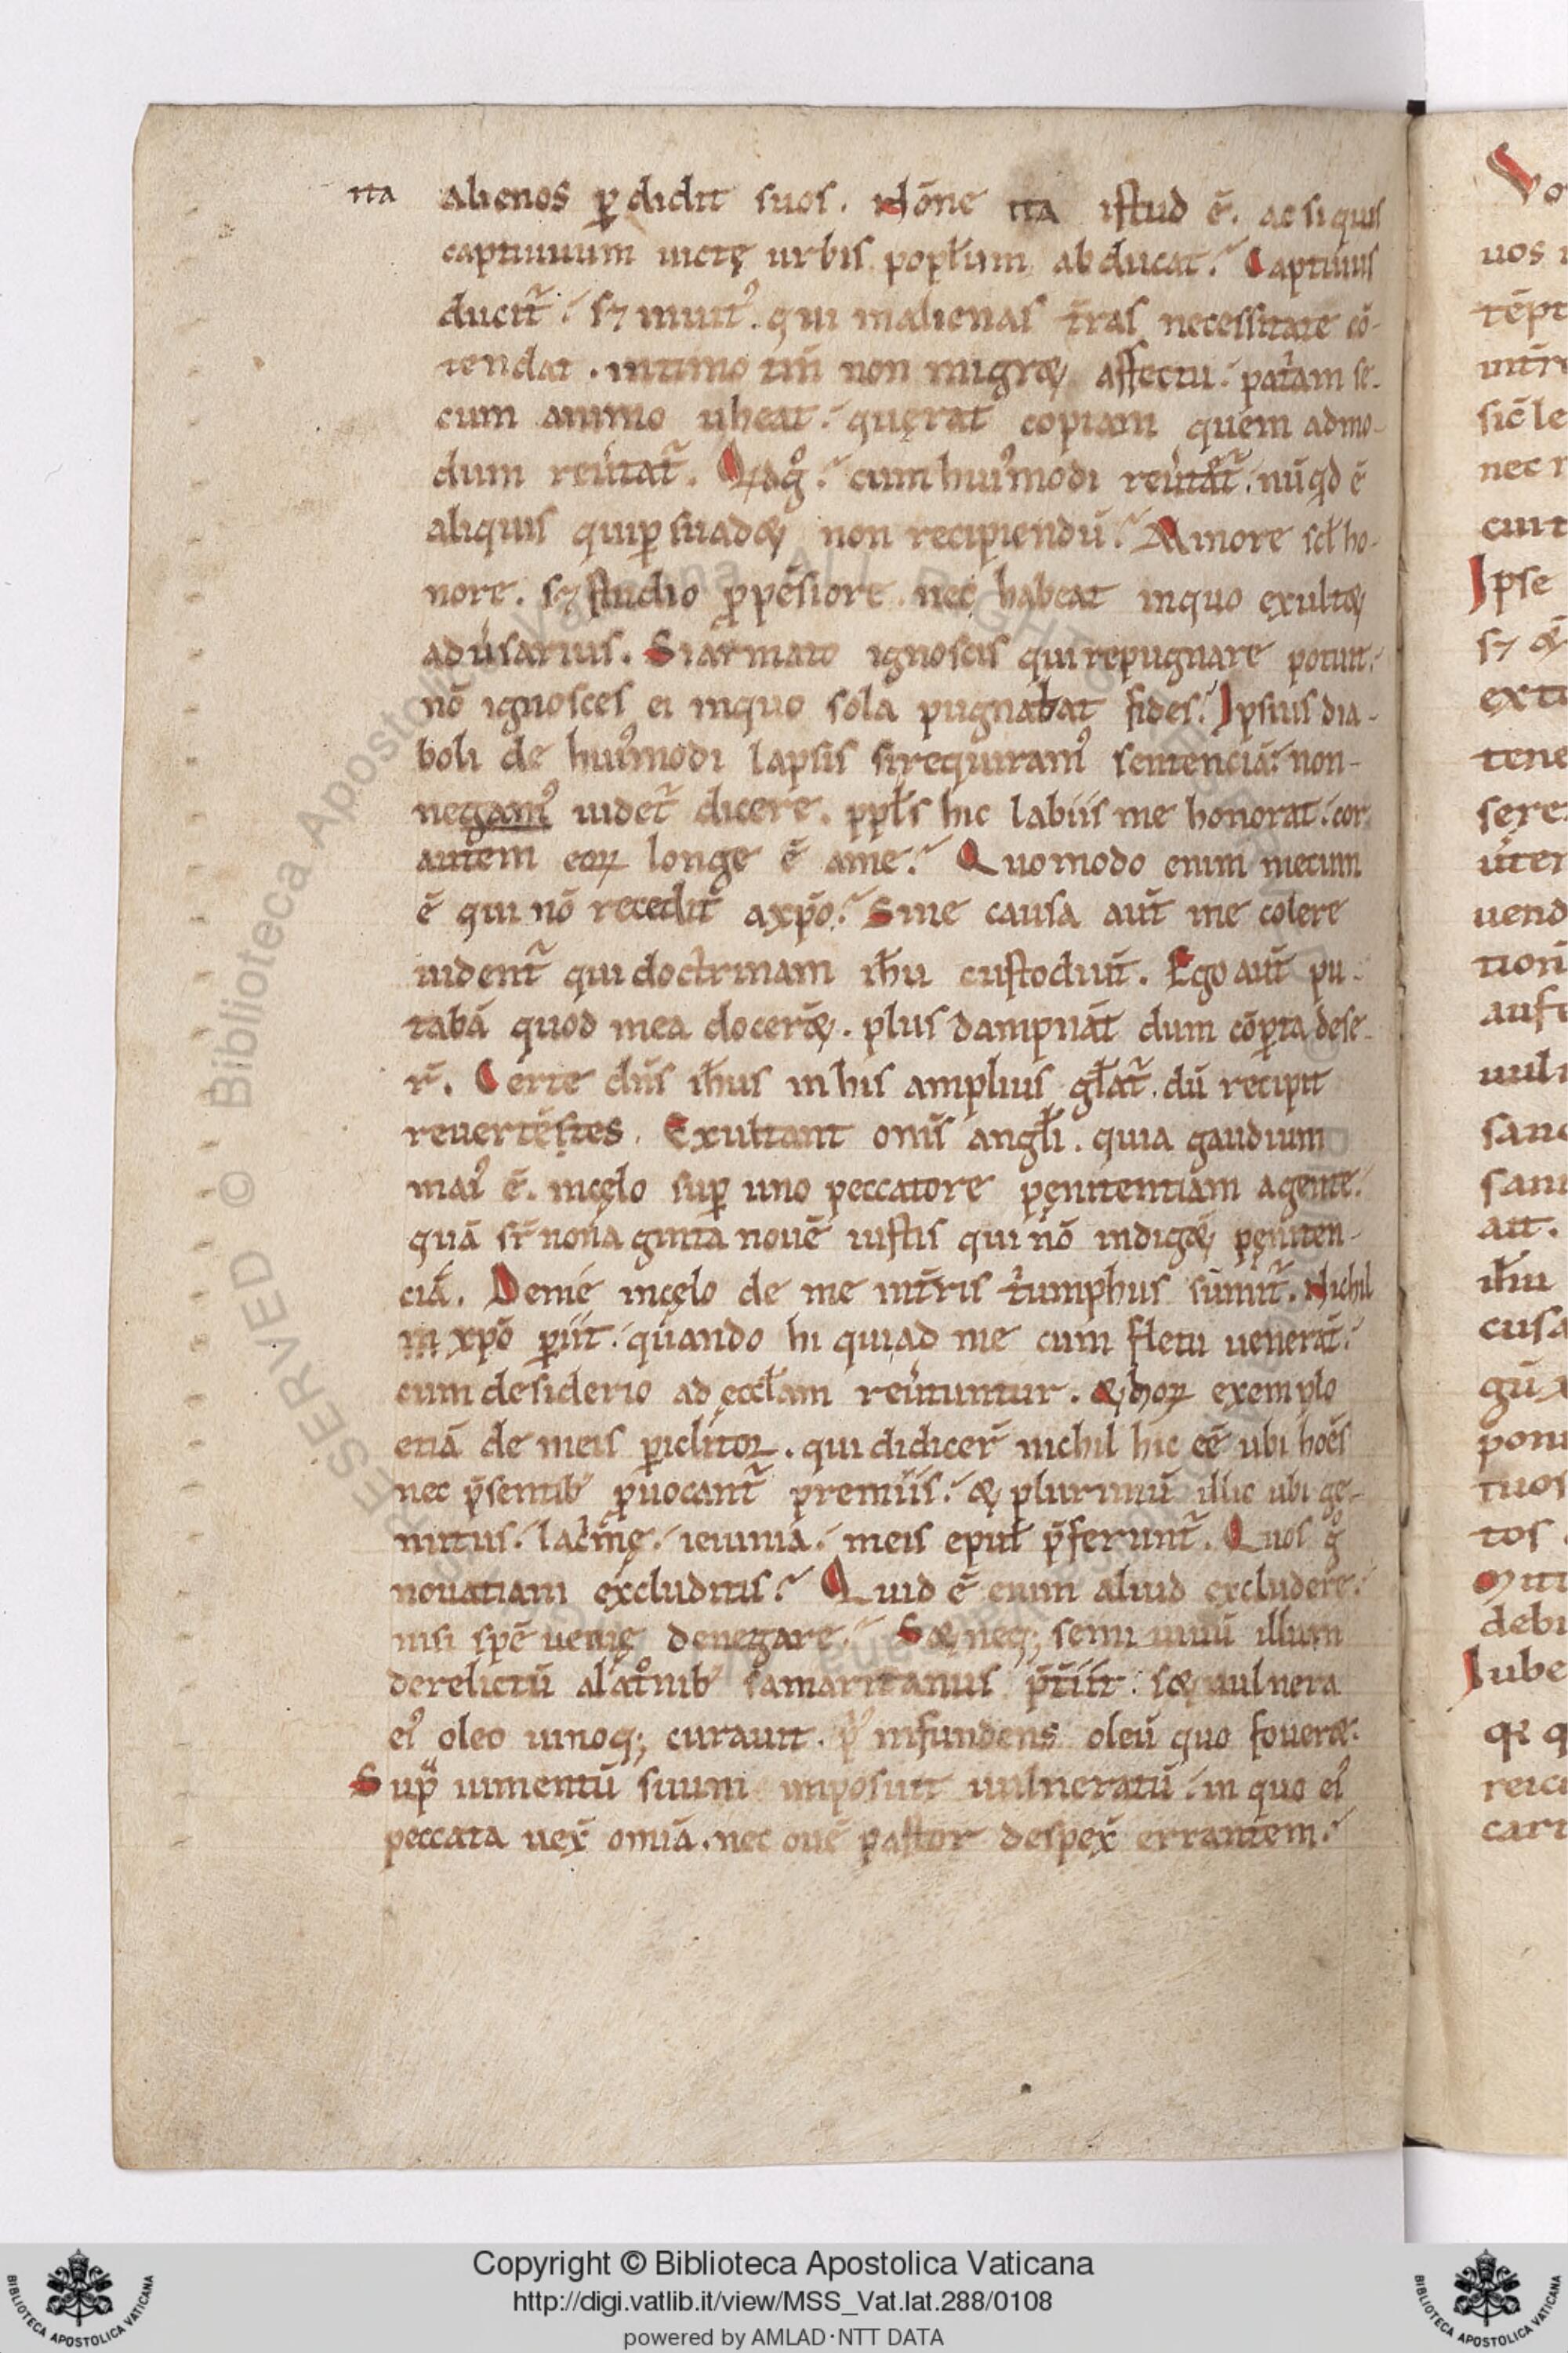 ita alienos ꝑdidit suos. Nōne ita istud ē. ac si quis
captiuum uictę urbis popl̄um abducat. Captiuus
ducit᷑ sꝫ inuit᷒. qui in alienas t̄ras necessitate cō-
tendat. intimo tm̄ non migr& affectu. pat̓am se-
cum animo uheat. quęrat copiam quem admo-
dum reu̓tat᷑. cum hui᷒modi reu̓tat᷑. nūqd ē
aliquis qui ꝑsuad& non recipiendū. Amore scl̄ ho-
nore. sꝫ studio ꝓpēsiore. nec habeat in quo exult&
adu̓sarius. Si armato ignoscis qui repugnare potuit.
nō ignosces ei in quo sola pugnabat fides. Ipsius dia-
boli de hui᷒modi lapsis si requiram᷒ sentenciā. non-
negam᷒ uidet᷑ dicere. ppl̄s hic labiis me honorat. cor
autem eoꝝ longe ē a me. Quomodo enim mecum
ē qui nō recedit a xp̄o. Sine causa aut̄ me colere
uident᷑ qui doctrinam ih̄u custodiut̄. Ego aut̄ pu-
tabā quod mea docer&. plus dampnāt dum cōꝑta dese-
r̄. Certe dn̄s ih̄us in his amplius gl̄at᷑. dū recipit
reuertēstes. Exultant om̄s angl̄i. quia gaudium
mai᷒ ē. in cęlo suꝑ uno peccatore pęnitentiam agente.
quā sr̄ nonaginta nouē iustis qui nō indig& pęniten-
ciā. Deniē in cęlo de me int̄ris t̓umphus sumit᷑. Nichil
in xp̄o ꝑiit. quando hi qui ad me cum fletu uenerāt.
cum desiderio ad ęccl̄am reu̓tuntur. & hoꝝ exemplo
etiā de meis ꝑiclitoꝝ. qui didicer̄ nichil hic eē ubi hoēs
nec p̄sentib᷒ ꝓuocant᷑ premiis. & plurimū illic ubi ge-
mitus. lac̓mę. ieiunia. meis epul̄ p̄ferunt᷑. Quos gͦ
nouatiani excluditis. Quid ē enim aliud excludere.
nisi spē uenię denegare. S& neqꝫ semi uiuū illum
derelictū a latͦnib᷒ samaritanus p̄t̓iit. s& uulnera
ei᷒ oleo uinoqꝫ curauit. p̓᷒ infundens oleū quo fouer&.
Supͣ iumentū suum imposuit uulneratū. in quo ei᷒
peccata uex̄ omīa. nec ouē pastor despex̄ errantem.
Copyright © Biblioteca Apostolica Vaticana
http://digi.vatlib.it/view/MSS_Vat.lat.288/0108
powered by AMLAD·NTT DATA